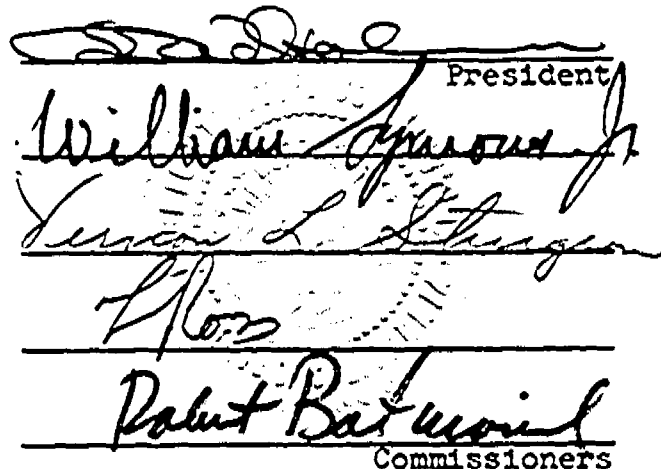 President
William Symons Jr.
Vernon L. Sturgeon
L Ross
Robert Batinovich
Commissioners